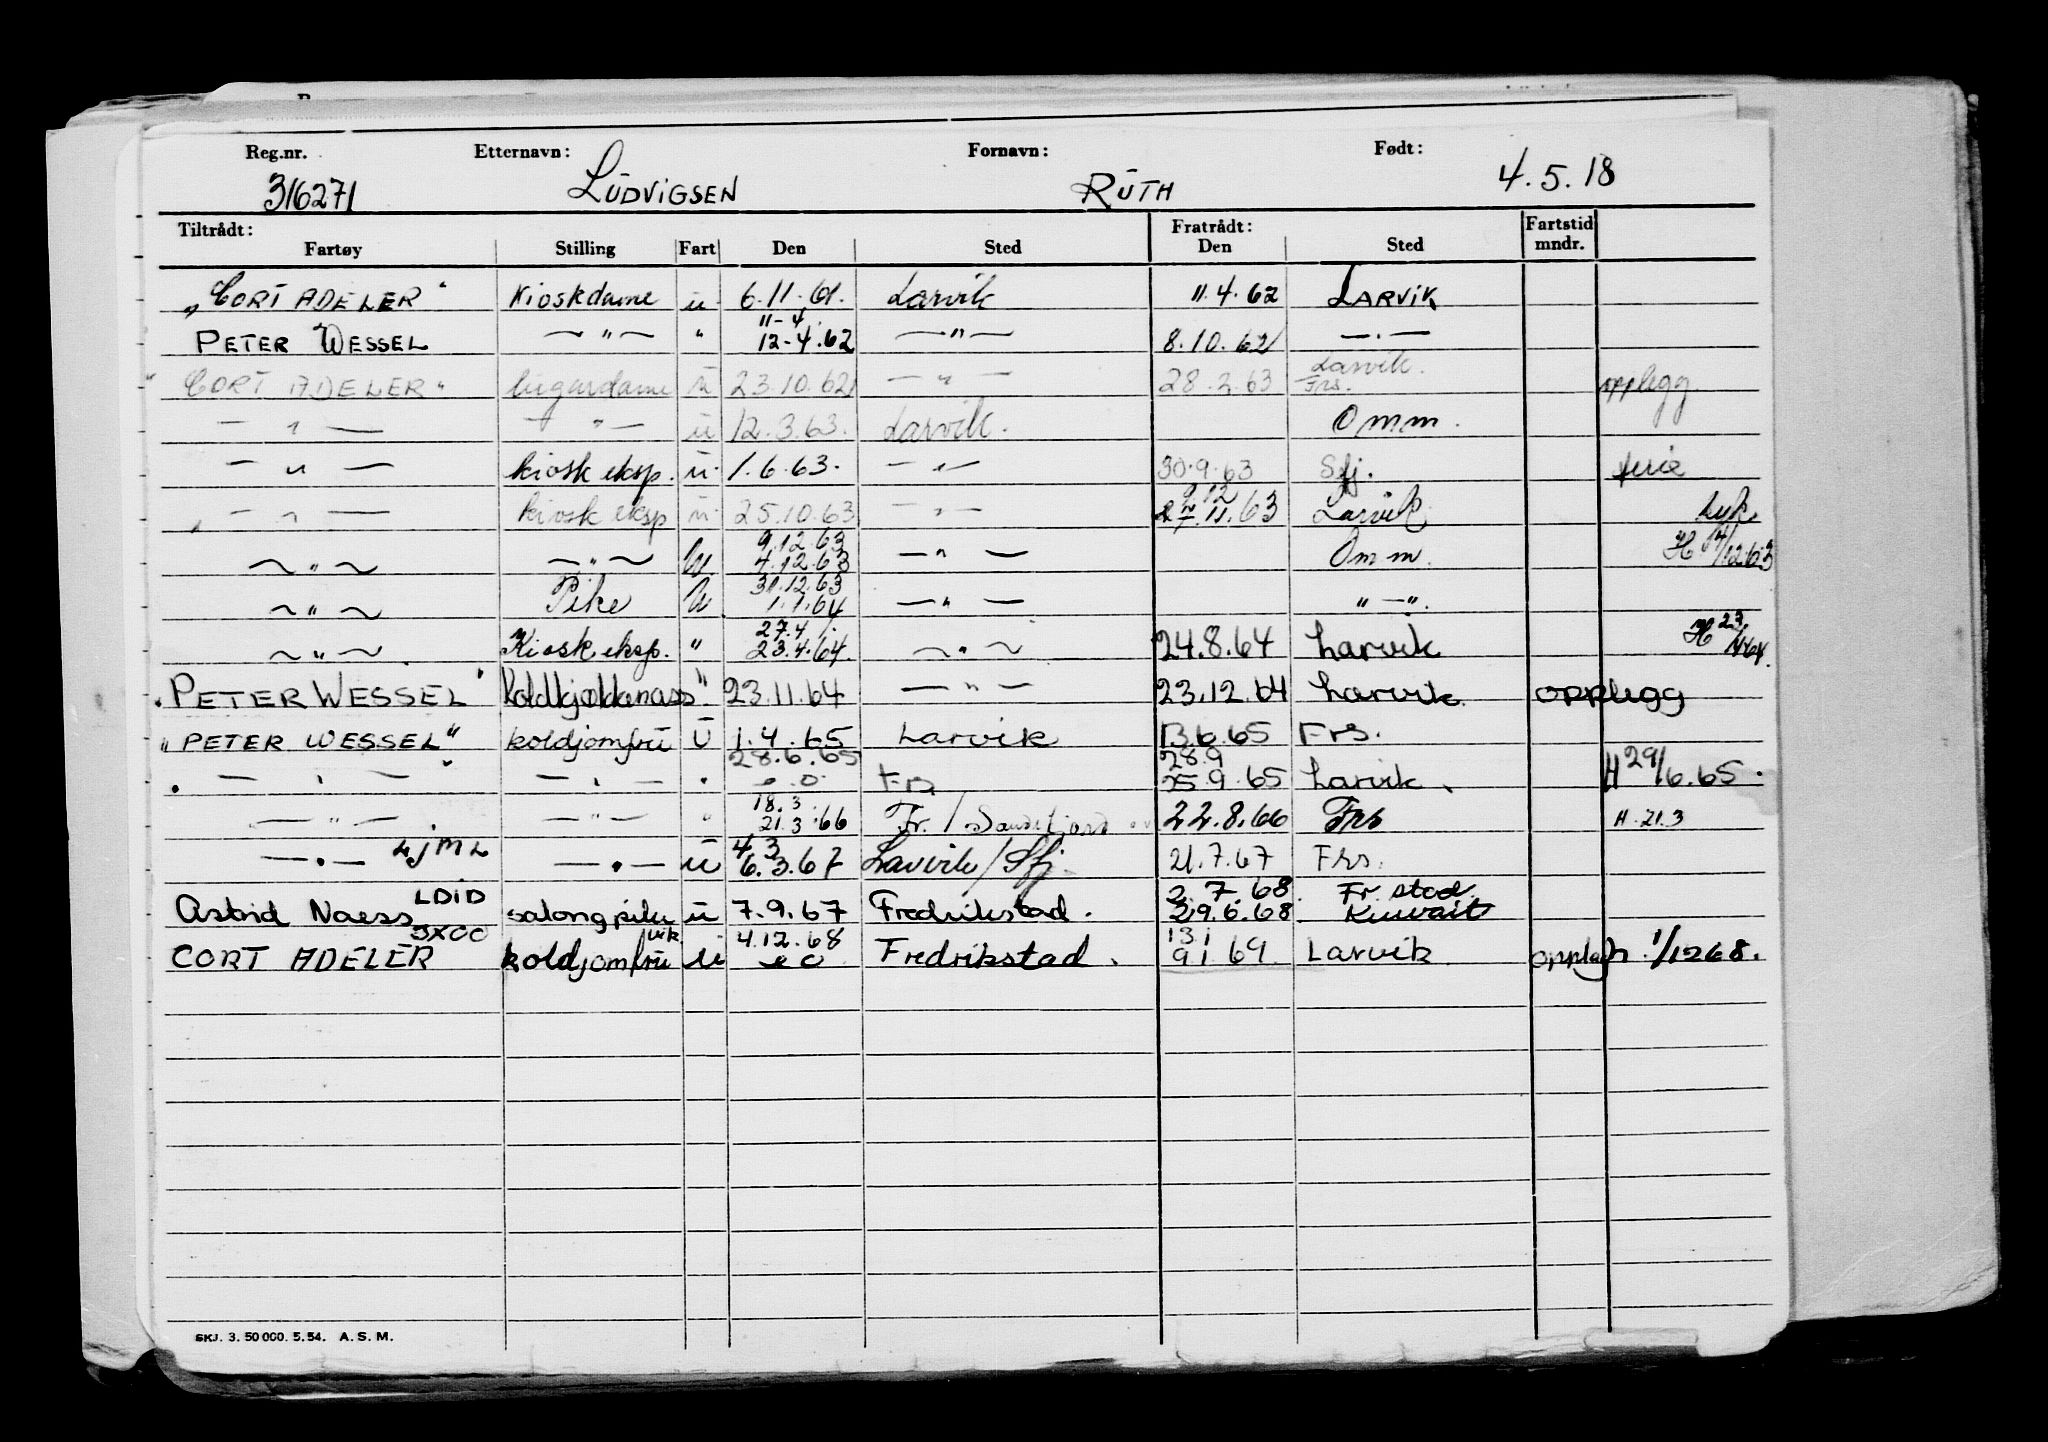 Reg.nr. Etternavn: Fornavn: Født:
316271 LUDVIGSEN RUTH 4.5.18
Tiltrådt: Fratrådt: Fartstid
Fartøy Stilling Fart Den Sted Den Sted mndr.
"CORT ADELER" Kioskdame u 6.11.61. Larvik 11.4.62 LARVIK
11-4
PETER WESSEL — " — " 12-4.62 — " — 8.10.62 — . —
Larvik.
"CORT ADELER" lugardame u 23.10.62 — " — 28.2.63 Frs. opplegg
— " — — " — u 12.3.63. Larvik. Omm.
— " — kiosk eksp. u. 1.6.63. — " — 30.9.63 Sfj. ferie
— " — kiosk eksp u. 25.10.63 — " — 11.63 Larvik syk
9.12.63
~ " ~ — " ~ U. 4.12.63 — " — Omm. H 14/12.63
31.12.63
~ " ~ Pike U. 1.1.64 — " — " — ".
27.4
~ " ~ Kiosk eksp. " 23.4.64. ~ " ~ 24.8.64 Larvik H 23/4 64.
"PETER WESSEL" " 23.11.64 — " — 23.12.64 Larvik opplegg
"PETER WESSEL" koldjomfru U 1.4.65 Larvik 13.6.65 Frs.
28.6.65 28.9
" — " — — " — " Frs 25.9.65 Larvik. H 29/6.65.
18.3
— " — — " — " 21.3.66 Fr./Sandefjord 22.8.66 Frs H.21.3
LJML 4.3
— " — — " — u 6.3.67 Larvik/Sfj. 21.7.67 Frs.
LDID 2.7.68 Fr.stad
Astrid Naess salongpike u 7.9.67 Fredrikstad. 29.6.68 Kuwait
JXOO vik 4.12.68 13 1
CORT ADELER koldjomfru u Fredrikstad. 9 1 69. Larvik opplegg h. 1/12 68.
SKJ. 3. 50 000. 5.54. A.S.M.